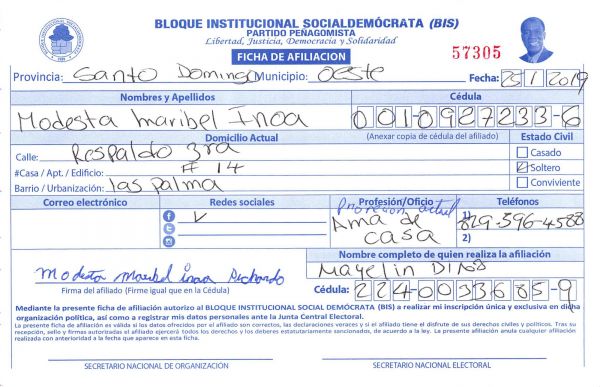 BLOQUE INSTITUCIONAL SOCIALDEMÓCRATA (BIS)
PARTIDO PEÑAGOMISTA
Libertad, Justicia, Democracia y Solidaridad
FICHA DE AFILIACION
57305
Provincia: Santo Domingo Municipio: Oeste Fecha: 25/1/2019
Nombres y Apellidos Cédula
Modesta Maribel Inoa 001-0927233-6
Domicilio Actual (Anexar copia de cédula del afiliado) Estado Civil
Calle: Respaldo 3ra Casado
#Casa / Apt. / Edificio: # 14 Soltero
Barrio / Urbanización: Las palma Conviviente
Correo electrónico Redes sociales Profesión/Oficio Teléfonos
Profesion actual
Ama de casa
1) 829-596-4588
2)
Nombre completo de quien realiza la afiliación
Mayelin
Modesta Maribel Inoa Pichardo
Firma del afiliado (Firme igual que en la Cédula)
Cédula: 224-0033685-9
Mediante la presente ficha de afiliación autorizo al BLOQUE INSTITUCIONAL SOCIAL DEMÓCRATA (BIS) a realizar mi inscripción única y exclusiva en dicha
organización política, así como a registrar mis datos personales ante la Junta Central Electoral.
La presente ficha de afiliación es válida si los datos ofrecidos por el afiliado son correctos, las declaraciones veraces y si el afiliado tiene el disfrute de sus derechos civiles y políticos. Tras su
recepción, sello y firmas autorizadas el afiliado ejercerá todos los derechos y los deberes estatutariamente sancionados, de acuerdo a la ley. La presente afiliación anula cualquier afiliación
realizada con anterioridad a la fecha que aparece en esta ficha.
SECRETARIO NACIONAL DE ORGANIZACIÓN SECRETARIO NACIONAL ELECTORAL